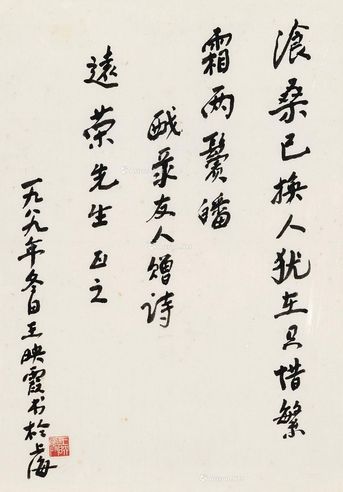 滄桑已換人猶在只惜繁
霜兩鬢皤
戲錄友人贈詩
遠荣先生正之
一九八九年冬日王映霞书於上海